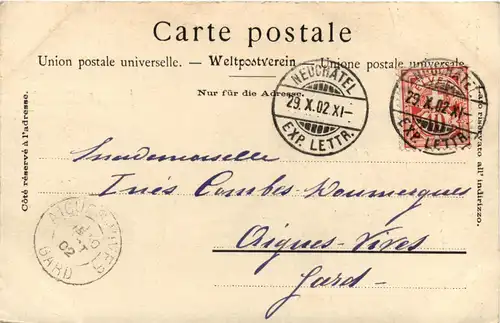 Carte postale
Union postale universelle. — Weltpostverein — Unione postale universale
Nur für die Adresse.
Côté réservé à l'adresse.
Lato riservato all' indirizzo.
NEUCHÂTEL
29. X. 02. XI–
EXP. LETTR.
NEUCHÂTEL
29. X. 02. XI–
EXP. LETTR.
10
Mademoiselle
Inès Combes-Doumergues
Aigues-Vives
Gard–
AIGUES-VIVES
02
GARD